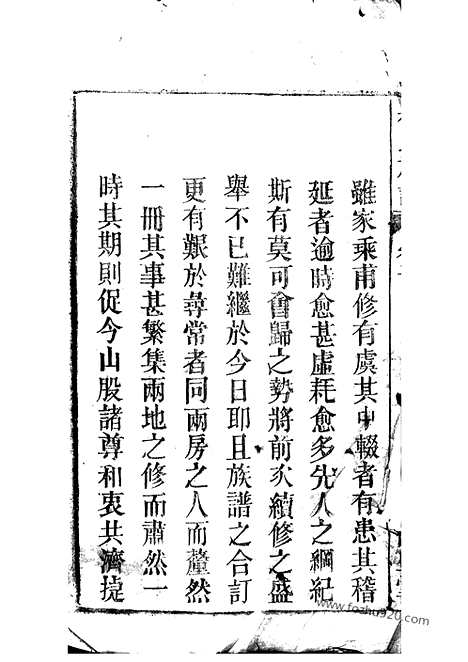 雖家乘甫修有虞其中輟者有患其稽
延者逾時愈甚虛耗愈多先人之綱紀
斯有莫可會歸之勢將前次續修之盛
舉不已難繼於今日耶且族譜之合訂
更有艱於尋常者同兩房之人而釐然
一冊其事甚繁集兩地之修而肅然一
時其期則促今山股諸尊和衷共濟提
www.fozhu920.com